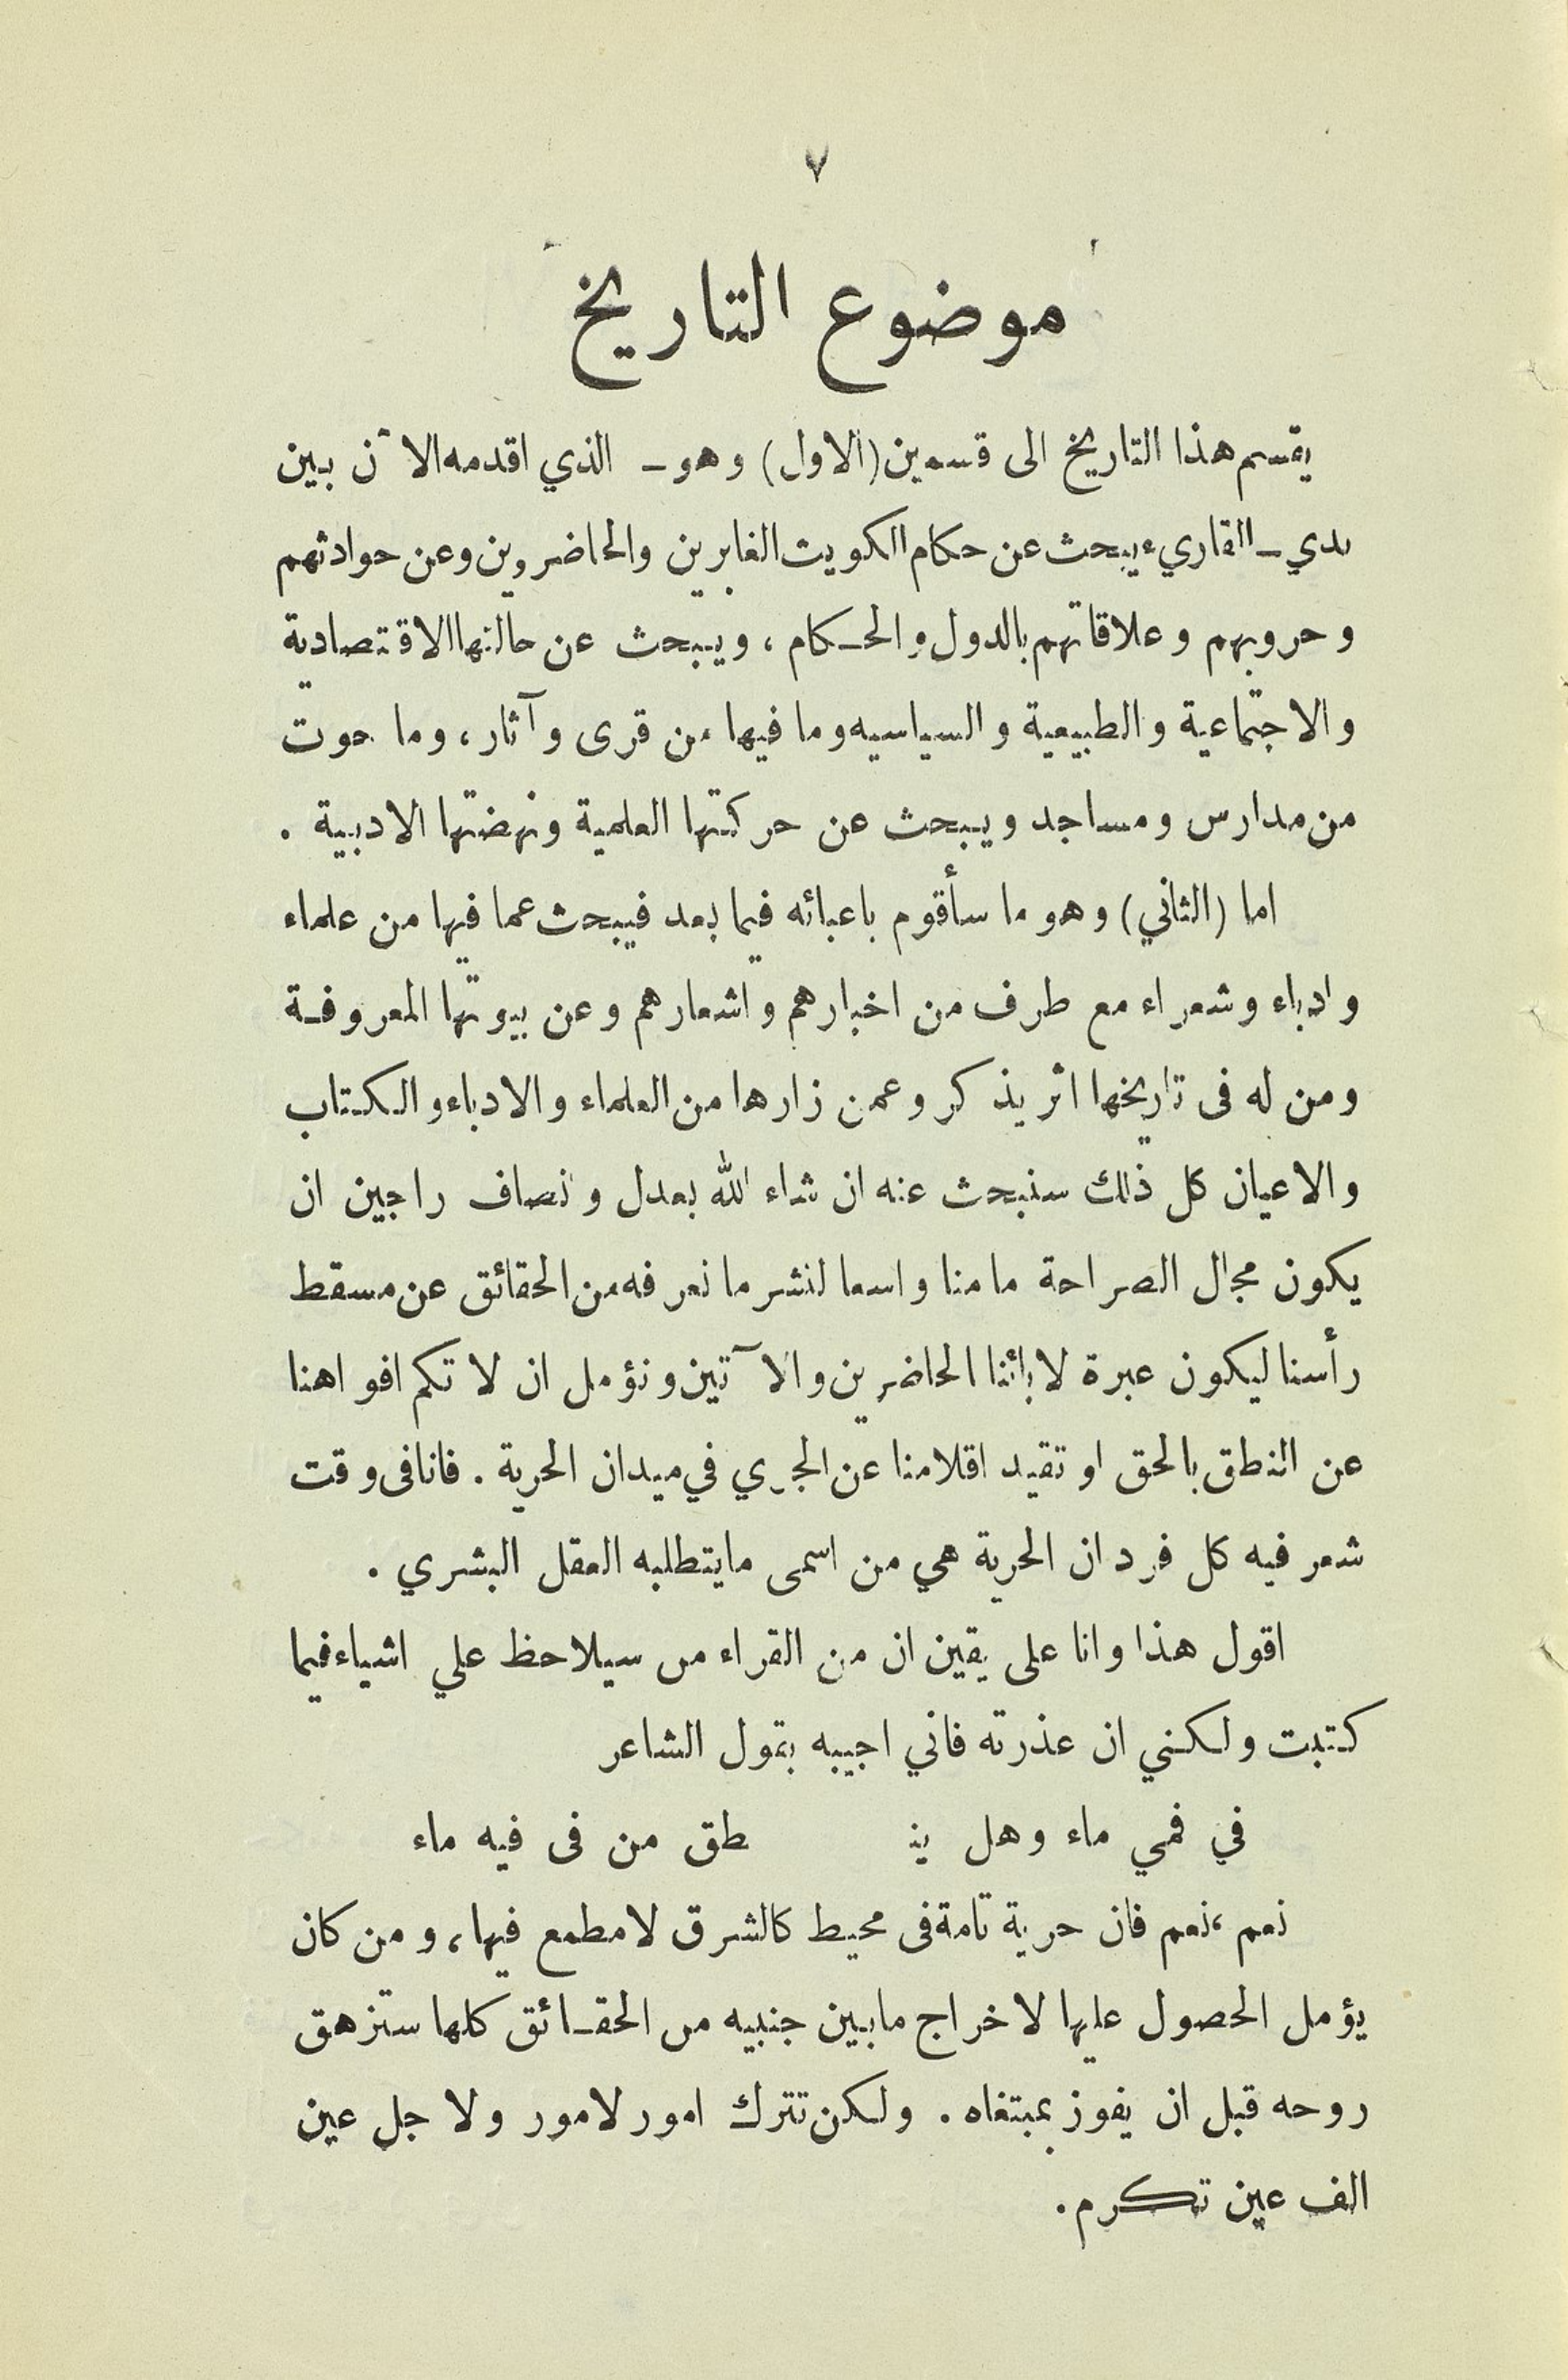 ٧
موضوع التاريخ
يقسم هذا التاريخ الى قسمين (الاول) وهو ـ الذي اقدمه الآن بين
يدي ـ القاريء يبحث عن حكام الكويت الغابرين والحاضرين وعن حوادثهم
وحروبهم وعلاقاتهم بالدول والحكام ، ويبحث عن حالتها الاقتصادية
والاجتماعية والطبيعية والسياسيه وما فيها من قرى وآثار ، وما حوت
من مدارس ومساجد ويبحث عن حركتها العلمية ونهضتها الادبية .
اما (الثاني) وهو ما سأقوم باعبائه فيما بعد فيبحث عما فيها من علماء
وادباء وشعراء مع طرف من اخبارهم واشعارهم وعن بيوتها المعروفة
ومن له فى تاريخها اثر يذكر وعمن زارها من العلماء والادباء والكتاب
والاعيان كل ذلك سنبحث عنه ان شاء الله بعدل وانصاف راجين ان
يكون مجال الصراحة مامنا واسعا لنشر ما نعرفه من الحقائق عن مسقط
رأسنا ليكون عبرة لابائنا الحاضرين والآتين ونؤمل ان لا تكم افواهنا
عن النطق بالحق او تقيد اقلامنا عن الجري في ميدان الحرية . فانا فى وقت
شعر فيه كل فرد ان الحرية هي من اسمى مايتطلبه العقل البشري .
اقول هذا وانا على يقين ان من القراء من سيلاحظ علي اشياء فيما
كتبت ولكنني ان عذرته فاني اجيبه بقول الشاعر
في فمي ماء وهل ينـ ـطق من فى فيه ماء
نعم ، نعم فان حرية تامة فى محيط كالشرق لا مطمع فيها ، ومن كان
يؤمل الحصول عليها لاخراج مابين جنبيه من الحقائق كلها ستزهق
روحه قبل ان يفوز بمبتغاه . ولكن تترك امور لامور ولاجل عين
الف عين تكرم .